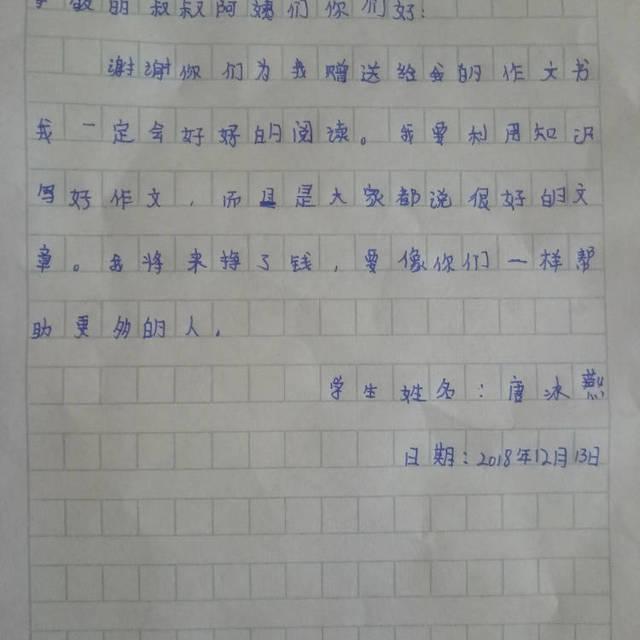 敬的叔叔阿姨们你们好:
谢谢你们为我赠送给我的作文书
我一定会好好的阅读。我要利用知识
写好作文,而且是大家都说很好的文
章。我将来挣了钱,要像你们一样帮
助更多的人.
学生姓名:唐冰燕
日期:2018年12月13日